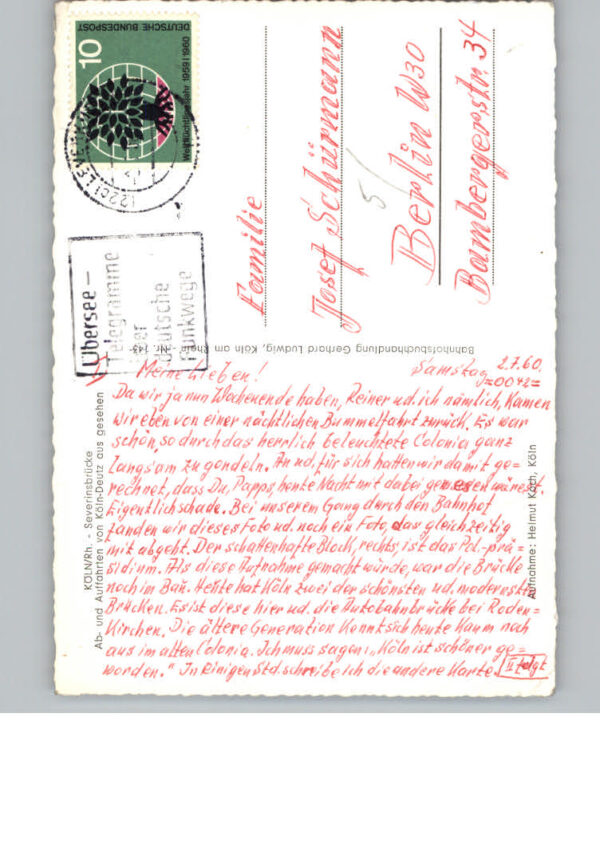 DEUTSCHE BUNDESPOST
10
Weltflüchtlingsjahr 1959/1960
(22c) LEVERKUSEN
Übersee –
Telegramme
über
deutsche
Funkwege
Familie
Josef Schürmann
5/
Berlin W30
Bambergerstr. 34
Bahnhofsbuchhandlung Gerhard Ludwig, Köln am Rhein Nr. 143
KÖLN/Rh. - Severinsbrücke
Ab- und Auffahrten von Köln-Deutz aus gesehen
Aufnahme: Helmut Koch, Köln
Samstag, 2.7.60.
=0042=
Meine Lieben!
Da wir ja nun Wochenende haben, Reiner ud. ich nämlich, Kamen
wir eben von einer nächtlichen Bummelfahrt zurück. Es war
schön, so durch das herrlich beleuchtete Colonia ganz
langsam zu gondeln. An ud. für sich hatten wir damit ge=
rechnet, dass Du, Papps, heute Nacht mit dabei gewesen wärest.
Eigentlich schade. Bei unserem Gang durch den Bahnhof
fanden wir dieses Foto ud. noch ein Foto, das gleichzeitig
mit abgeht. Der schattenhafte Block, rechts, ist das Pol.-prä=
sidium. Als diese Aufnahme gemacht würde, war die Brücke
noch im Bau. Heute hat Köln zwei der schönsten ud. modernsten
Brücken. Es ist diese hier ud. die Autobahnbrücke bei Roden=
Kirchen. Die ältere Generation Kennt sich heute Kaum noch
aus im alten Colonia. Ich muss sagen: „Köln ist schöner ge=
worden." In einigen Std. schreibe ich die andere Karte. II folgt